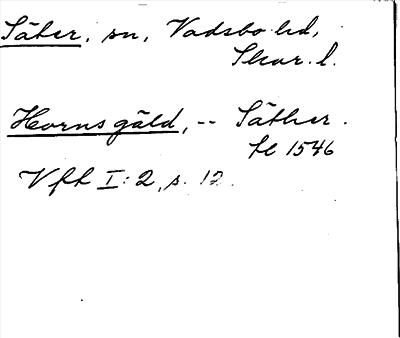 Säter, sn, Vadsbo hd,
Skar. l.
Hornsgäld, -- Säther.
fe 1546
Vfk I:2, s. 12.